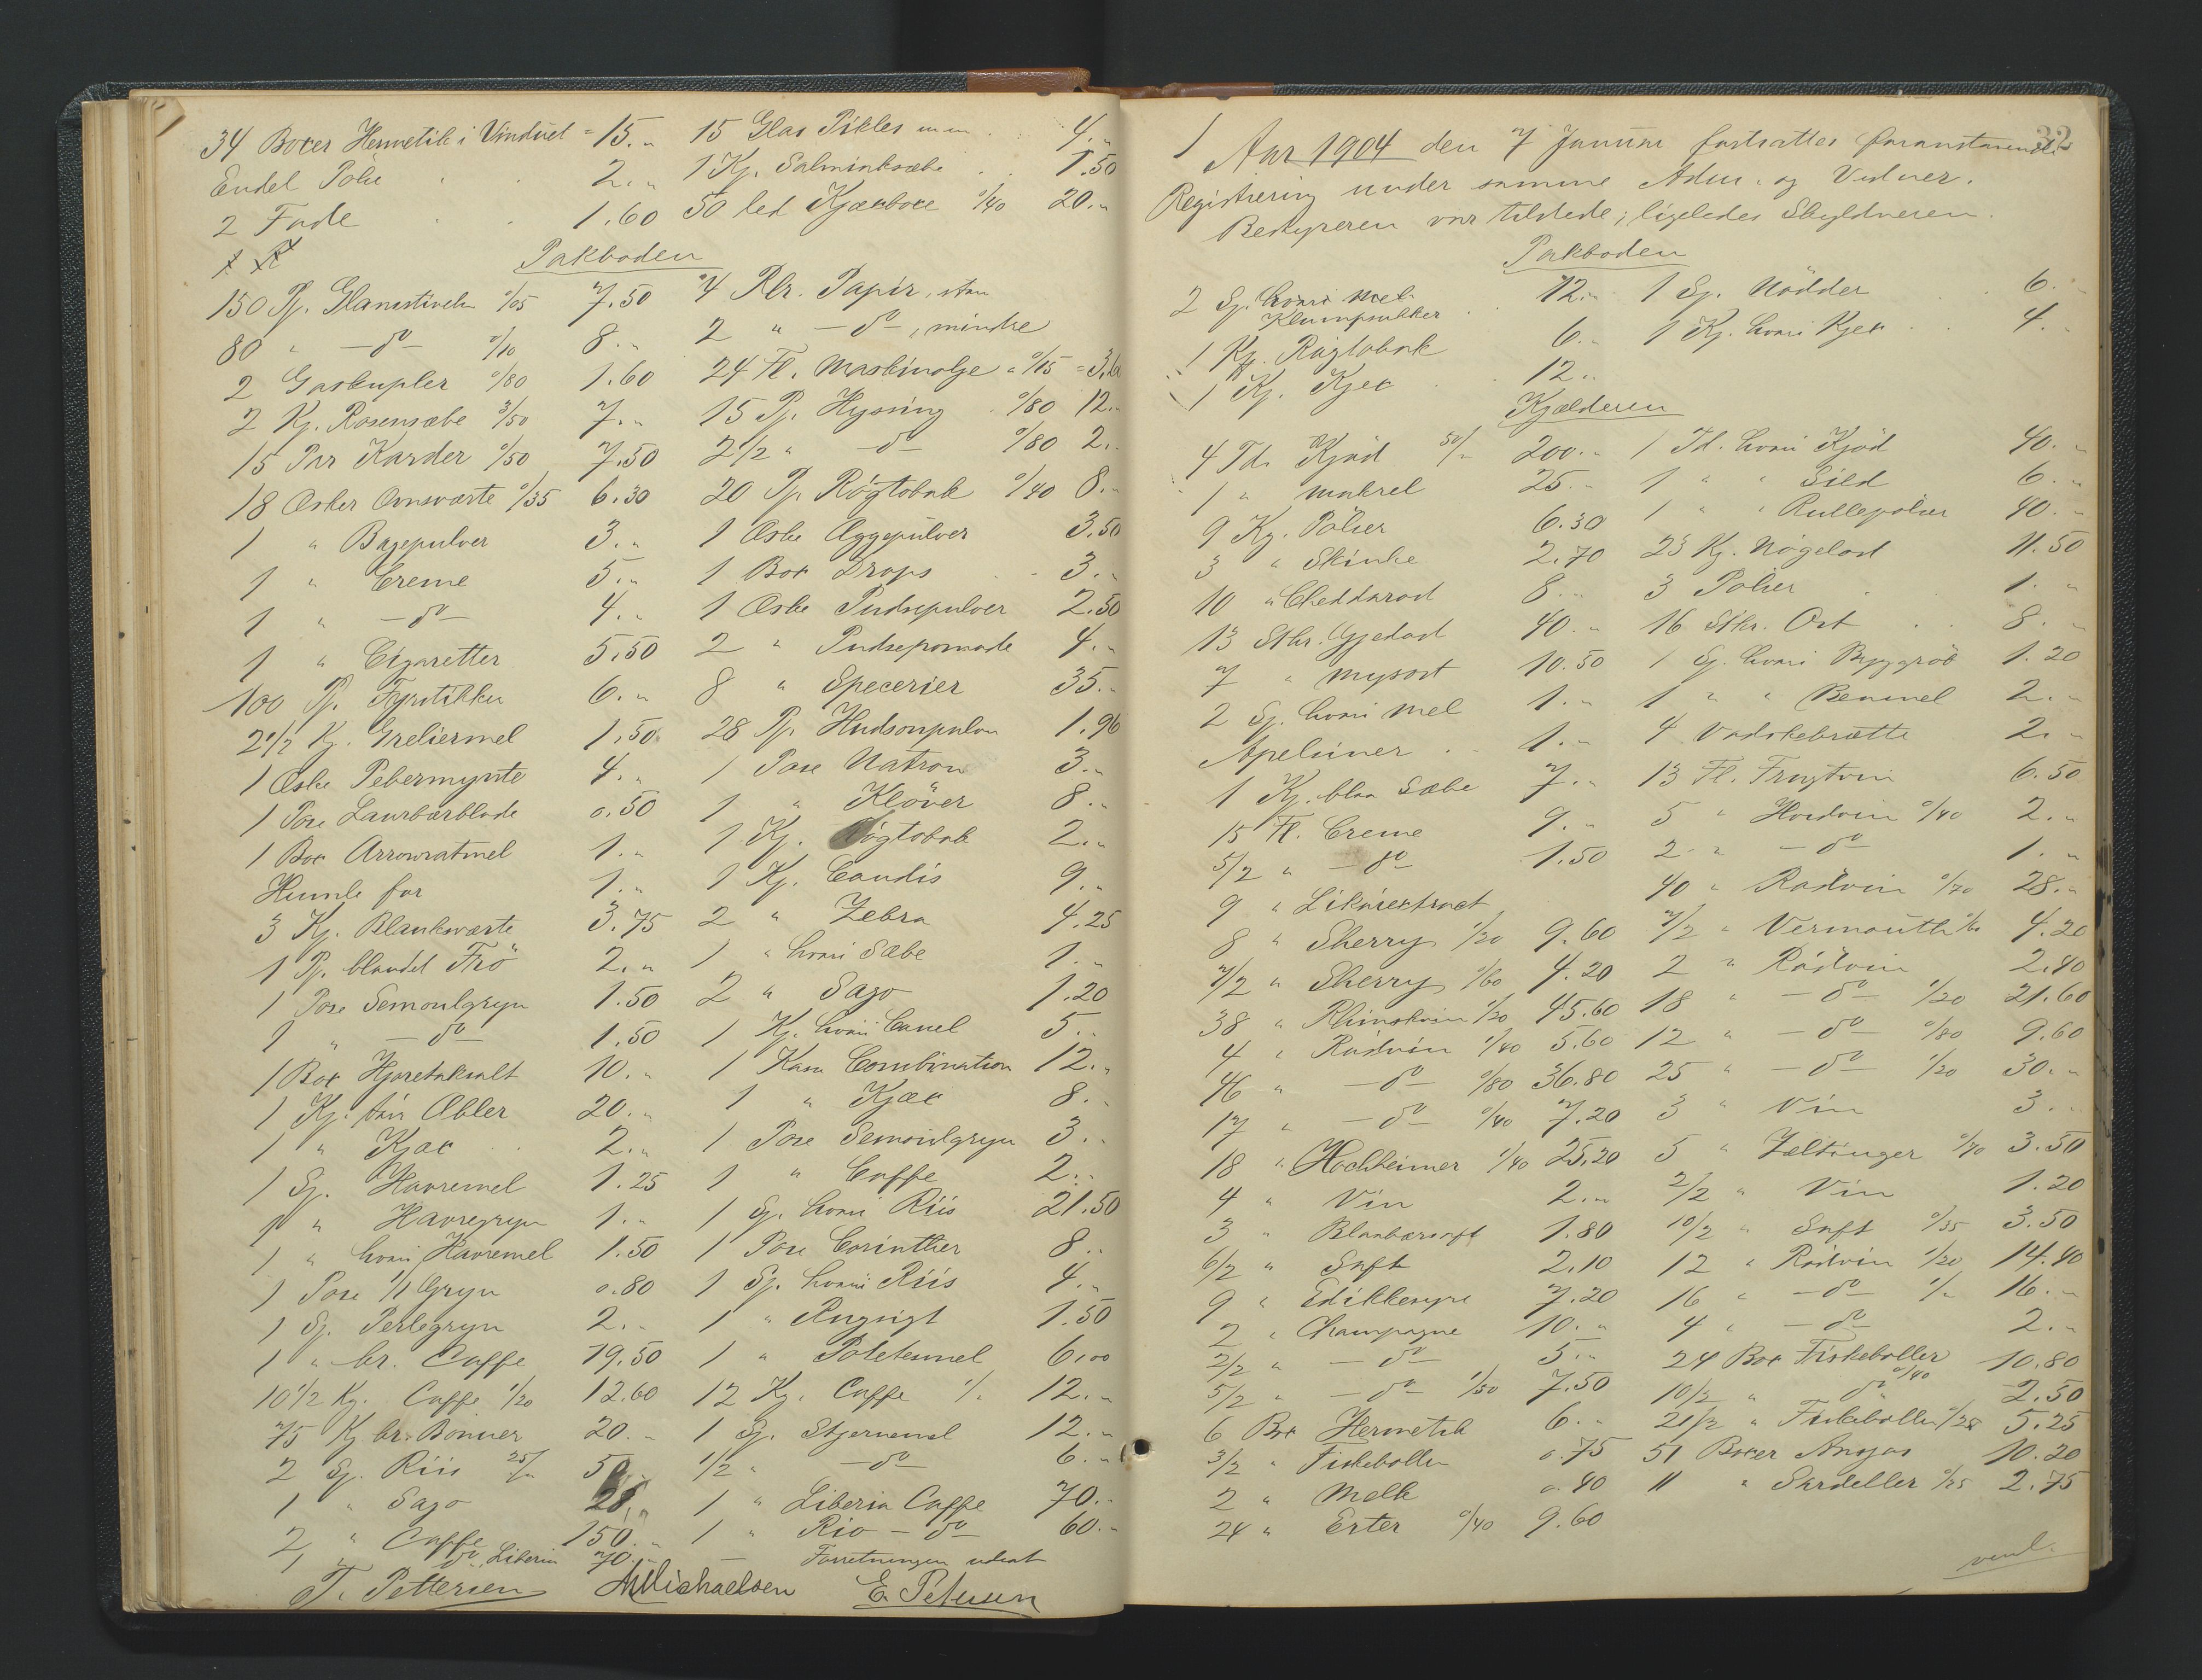 34 Boxer Hermetik i Vinduet = 15.„ 15 Glas Pikles m.m. 4.„
Endel Pölse 2.„ 1 Kj. Salmiaksæbe 1.50
2 Fade 1.60 50 led Kjæxboxe 0/40 20.„
Pakboden
150 Pj. Glansstivelse 0/05 7.50 4 Rlr. Papir, stor
80 „ - do - 0/10 8.„ 2 „ - do -, mindre
2 Gaskupler 0/80 1.60 24 Fl. Maskinolje a 0/15 = 3.60
2 Kj. Rosensæbe 3/50 7.„ 15 Pj. Hyssing 0/80 12.„
15 Par Karder 0/50 7.50 2 1/2 „ - do - 0/80 2.„
18 Æsker Ovnsværte 0/35 6.30 20 Pj. Rögtobak 0/40 8.„
1 „ Bagepulver 3.„ 1 Æske Æggepulver 3.50
1 „ Creme 5.„ 1 Box Drops 3.„
1 „ - do - 4.„ 1 Æske Pudsepulver 2.50
1 „ Cigaretter 5.50 2 „ Pudsepomade 4.„
100 Pj. Fyrstikker 6.„ 8 „ Specerier 35.„
2 1/2 Kj. Greliermel 1.50 28 Pj. Hudsonpulver 1.96
1 Æske Pebermynte 4.„ 1 Pose Natron 3.„
1 Pose Laurbærblade 0.50 1 „ Klöver 8.„
1 Box Arrowratmel 1.„ 1 Kj. Rögtobak 2.„
Humle for 1.„ 1 Kj. Candis 9.„
3 Kj. Blanksværte 3.75 2 „ Zebra 4.25
1 Pj. blandet Frö 2.„ 1 „ hvori Sæbe 1.„
1 Pose Semoulgryn 1.50 2 „ Sago 1.20
1 „ - do - 1.50 1 Kj. hvori Canel 5.„
1 Box Hjortetaksalt 10.„ 1 Kasse Combination 12.„
1 Kj. tör Æbler 20.„ 1 „ Kjæx 8.„
1 „ Kjæx 2.„ 1 Pose Semoulgryn 3.„
1 Sj. Havremel 1.25 1 „ Caffe 2.„
1 „ Havregryn 1.„ 1 Sj. hvori Riis 21.50
1 „ hvori Havremel 1.50 1 Pose Corinther 8.„
1 Pose 1/1 Gryn 0.80 1 Sj. hvori Riis 4.„
1 Sj. Perlegryn 2.„ 1 „ Rugsigt 1.50
1 „ br. Caffe 19.50 1 „ Potetesmel 6.00
10 1/2 Kg. Caffe 1/20 12.60 12 Kg. Caffe 1/„ 12.„
75 Kj br. Bönner 20.„ 1 Sj. Stjernemel 12.„
2 Sj. Riis 25/„ 50.„ 1/2 „ - do - 6.„
1 „ Sago 28.„ 1 „ Liberia Caffe 70.„
2 „ Caffe 150.„ 1 „ Rio - do - 60.„
1 „ do, Liberia 70.„ - Forretningen udsat
T. Pettersen AMichaelsen E. Petersen
32
Aar 1904 den 7 Januar fortsattes foranstaaende
Registrering under samme Adm. og Vidner.
Bestyreren var tilstede; ligeledes Skyldneren.
Pakboden
2 Sj. hvori Mel. Klumpsukker 12.„ 1 Sj. Nödder 6.„
1 Kj. Rögtobak 6.„ 1 Kj. hvori Kjex 4.„
1 Kj. Kjex 12.„
Kjælderen
4 Td. Kjöd 50/„ 200.„ 1 Td. hvori Kjöd 40.„
1 „ Makrel 25.„ 1 „ „ Sild 6.„
9 Kg. Pölser 6.30 1 „ „ Rullepölser 40.„
3 „ Skinke 2.70 23 Kg. Nögelost 11.50
10 „ Cheddarost 8.„ 3 Pölser 1.„
13 Stkr. Gjedost 40.„ 16 Stkr. Ost 8.„
7 „ Mysost 10.50 1 Sj. hvori Byggröb 1.20
2 Sj. hvori Mel 1.„ 1 „ „ Benmel 2.„
Apelsiner 1.„ 4 Vadskebrætte 2.„
1 Kj. blaa Sæbe 7.„ 13 Fl. Frugtvin 6.50
15 Fl. Creme 9.„ 5 „ Hvidvin 0/40 2.„
5/2 „ - do - 1.50 2 „ - do - 1.„
9 „ Likörextract 40 „ Rödvin 0/70 28.„
8 „ Sherry 1/20 9.60 7/2 „ Vermouth 0/60 4.20
7/2 „ Sherry 0/60 4.20 2 „ Rödvin 2.40
38 „ Rhinskvin 1/20 45.60 18 „ - do - 1/20 21.60
4 „ Rödvin 1/40 5.60 12 „ - do - 0/80 9.60
46 „ - do - 0/80 36.80 25 „ - do - 1/20 30.„
17 „ - do - 0/40 7.20 3 „ Vin 3.„
18 „ Hochheimer 1/40 25.20 5 „ Zeltinger 0/70 3.50
4 „ Vin 2.„ 2/2 „ Vin 1.20
3 „ Blaabærsaft 1.80 10/2 „ Saft 0/35 3.50
6/2 „ Saft 2.10 12 „ Rödvin 1/20 14.40
9 „ Edikkesyre 7.20 16 „ - do - 1/„ 16.„
2 „ Champagne 10.„ 4 „ - do - 2.„
2/2 „ - do - 5.„ 24 Box Fiskeboller 10.80
5/2 „ - do - 1/50 7.50 10/2 „ do 0/40 2.50
6 Box Hermetik 6.„ 21/2 „ Fiskeboller 0/25 5.25
3/2 „ Fiskeboller 0.75 51 Boxer Ansjos 10.20
2 „ Melk 0.40 11 „ Sardeller 0/25 2.75
24 „ Erter 0/40 9.60
vend.